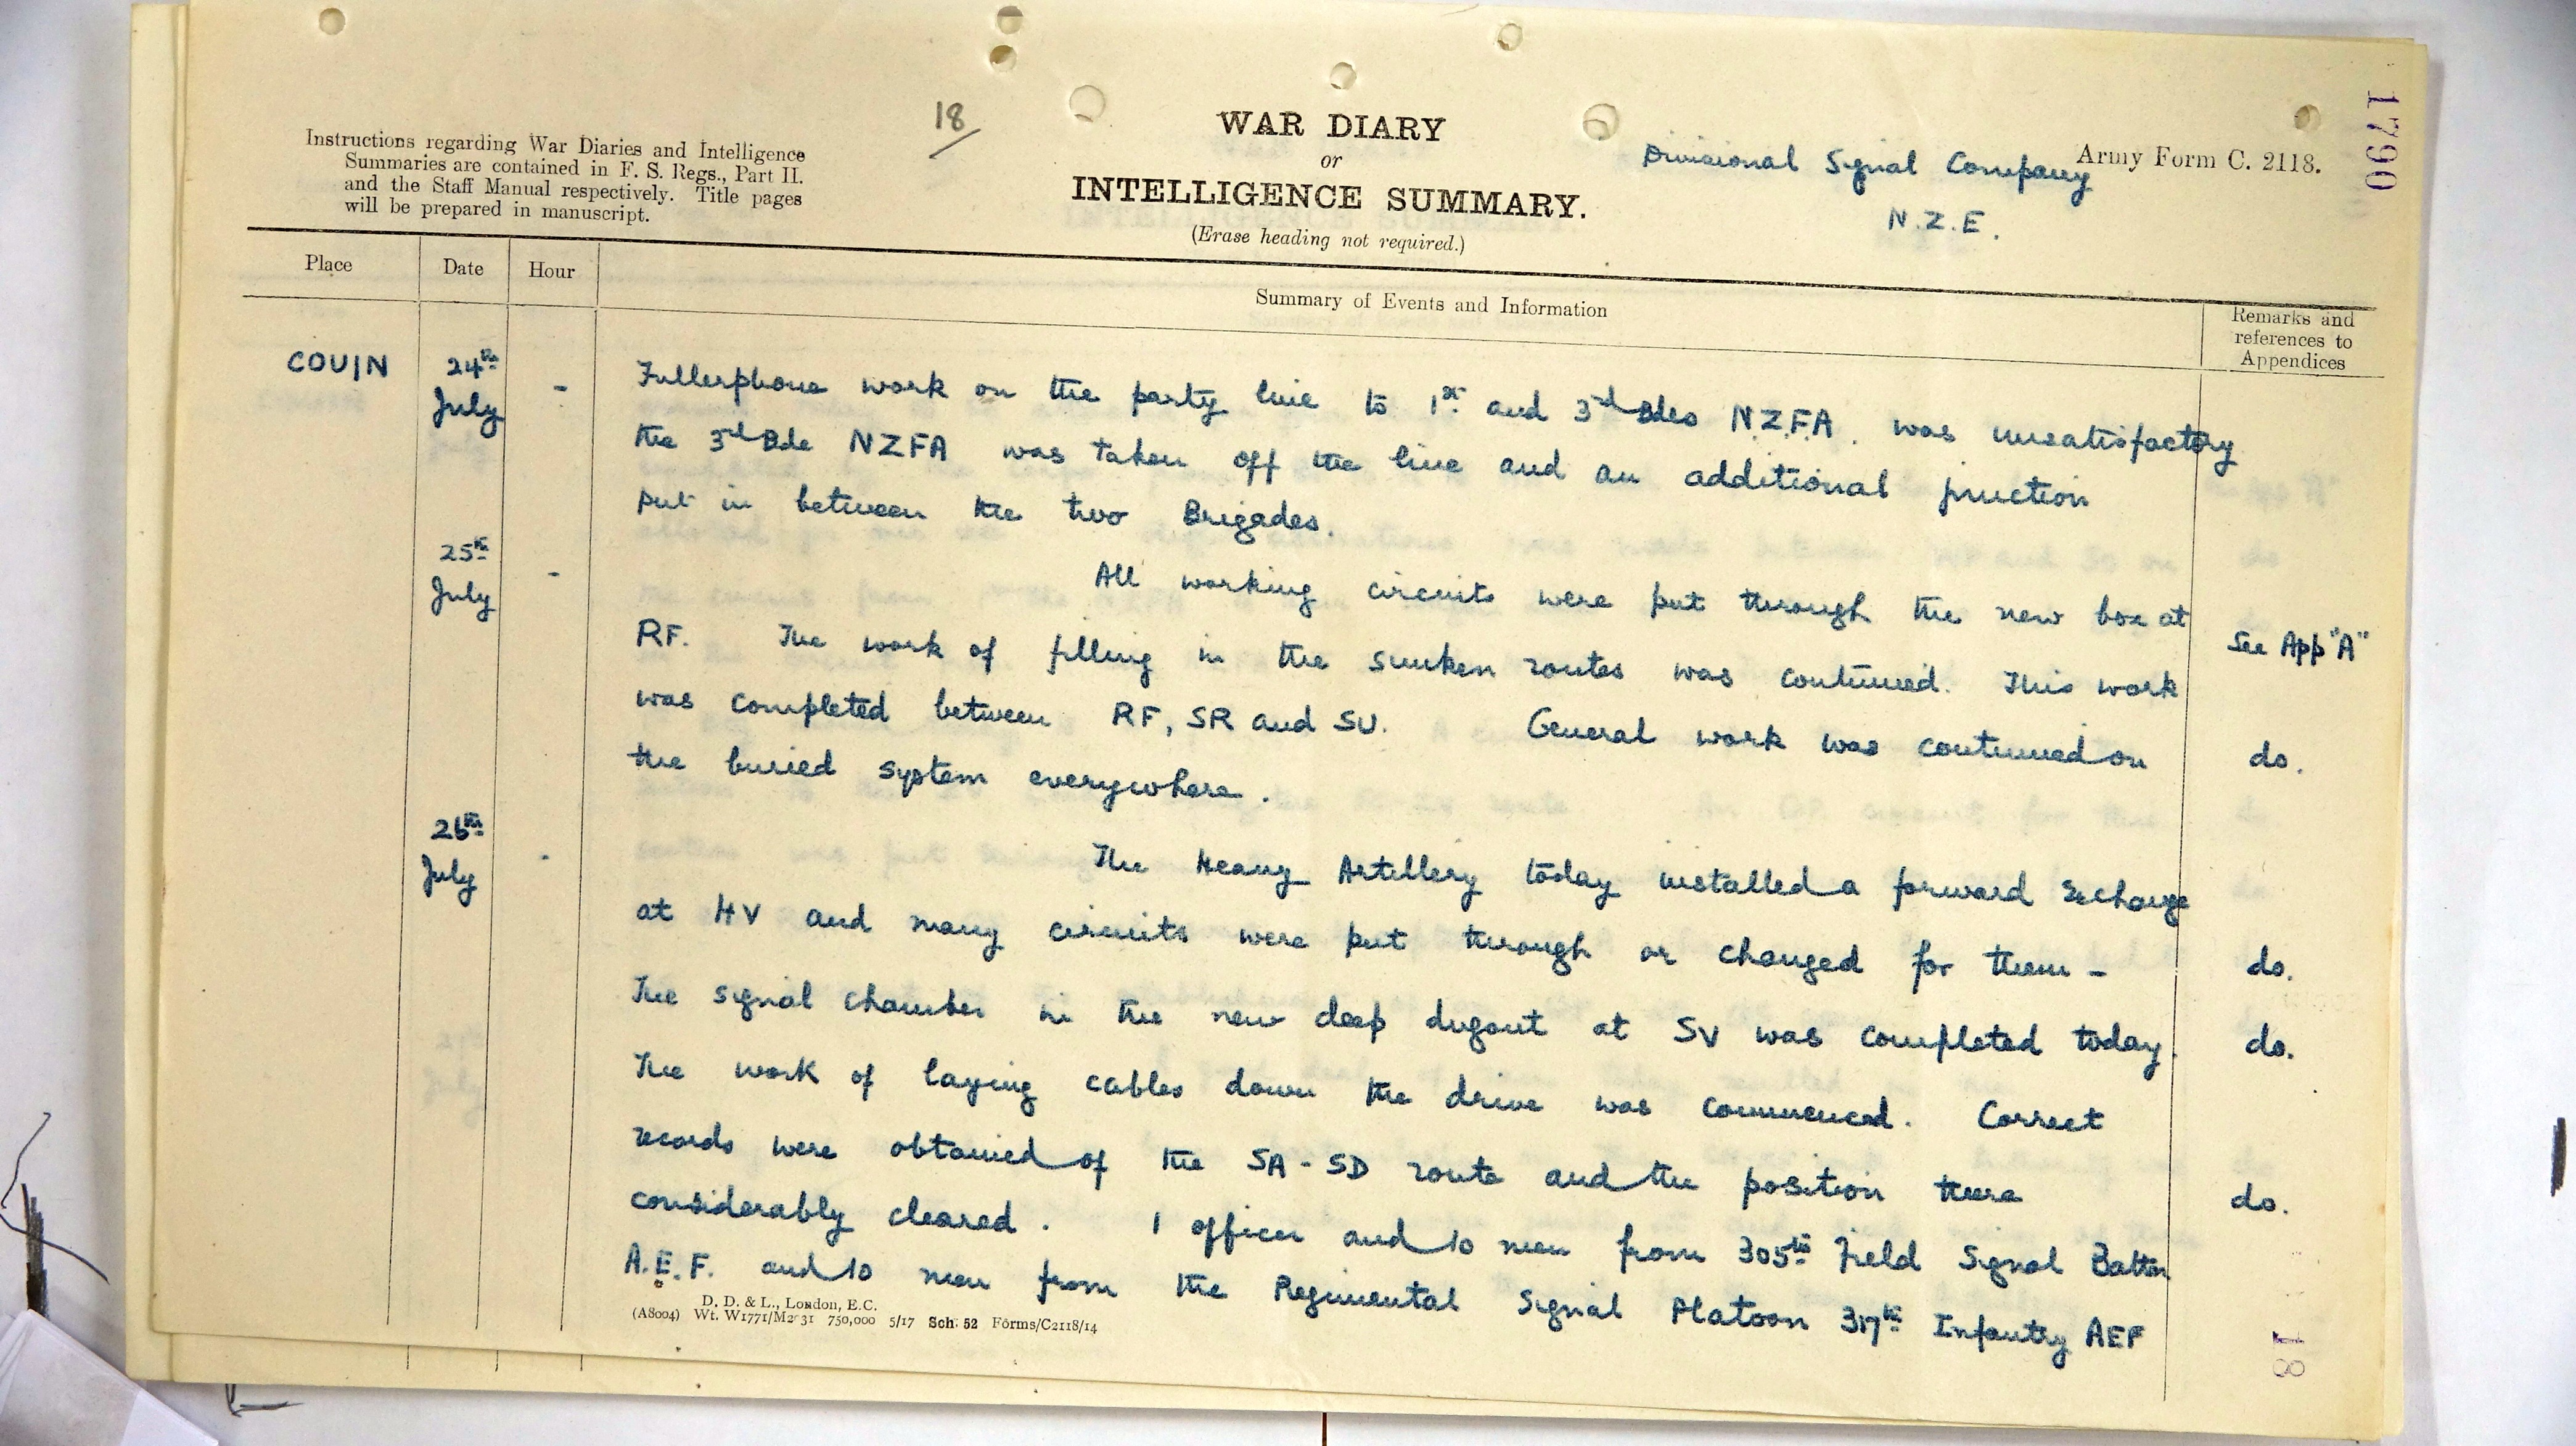 18
WAR DIARY
or
INTELLIGENCE SUMMARY.
(Erase heading not required.)
Instructions regarding War Diaries and Intelligence
Summaries are contained in F. S. Regs., Part II.
and the Staff Manual respectively. Title pages
will be prepared in manuscript.
Divisional Signal Company
N.Z.E.
Army Form C. 2118.
1790
Place
Date
Hour
Summary of Events and Information
Remarks and
references to
Appendices
COUIN
24th
July
-
Fullerphone work on the party line to 1st and 3rd Bdes N.Z.F.A. was unsatisfactory
the 3rd Bde NZFA was taken off the line and an additional junction
put in between the two Brigades.
25th
July
-
All working circuits were put through the new box at
RF. The work of filling in the sunken routes was continued. This work
See App "A"
was completed between RF, SR and SU. General work was continued on
do.
the buried system everywhere.
26th
July
-
The Heavy Artillery today installed a forward Exchange
at HV and many circuits were put through or changed for them -
do.
The signal chamber in the new deep dugout at SV was completed today.
do.
The work of laying cables down the drive was commenced. Correct
records were obtained of the SA - SD route and the position there
do.
considerably cleared. 1 officer and 10 men from 305th Field Signal Battn
A.E.F. and 10 men from the Regimental Signal Platoon 317th Infantry AEF
D. D. & L., London, E.C.
(A8004) Wt. W1771/M2 31 750,000 5/17 Sch. 52 Forms/C2118/14
18